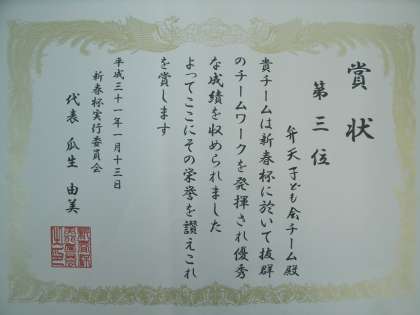 賞状
第三位
弁天子ども会チーム殿
貴チームは新春杯に於いて抜群
のチームワークを発揮され優秀
な成績を収められました
よってここにその栄誉を讃えこれ
を賞します
平成三十一年一月十三日
新春杯実行委員会
代表 瓜生 由美